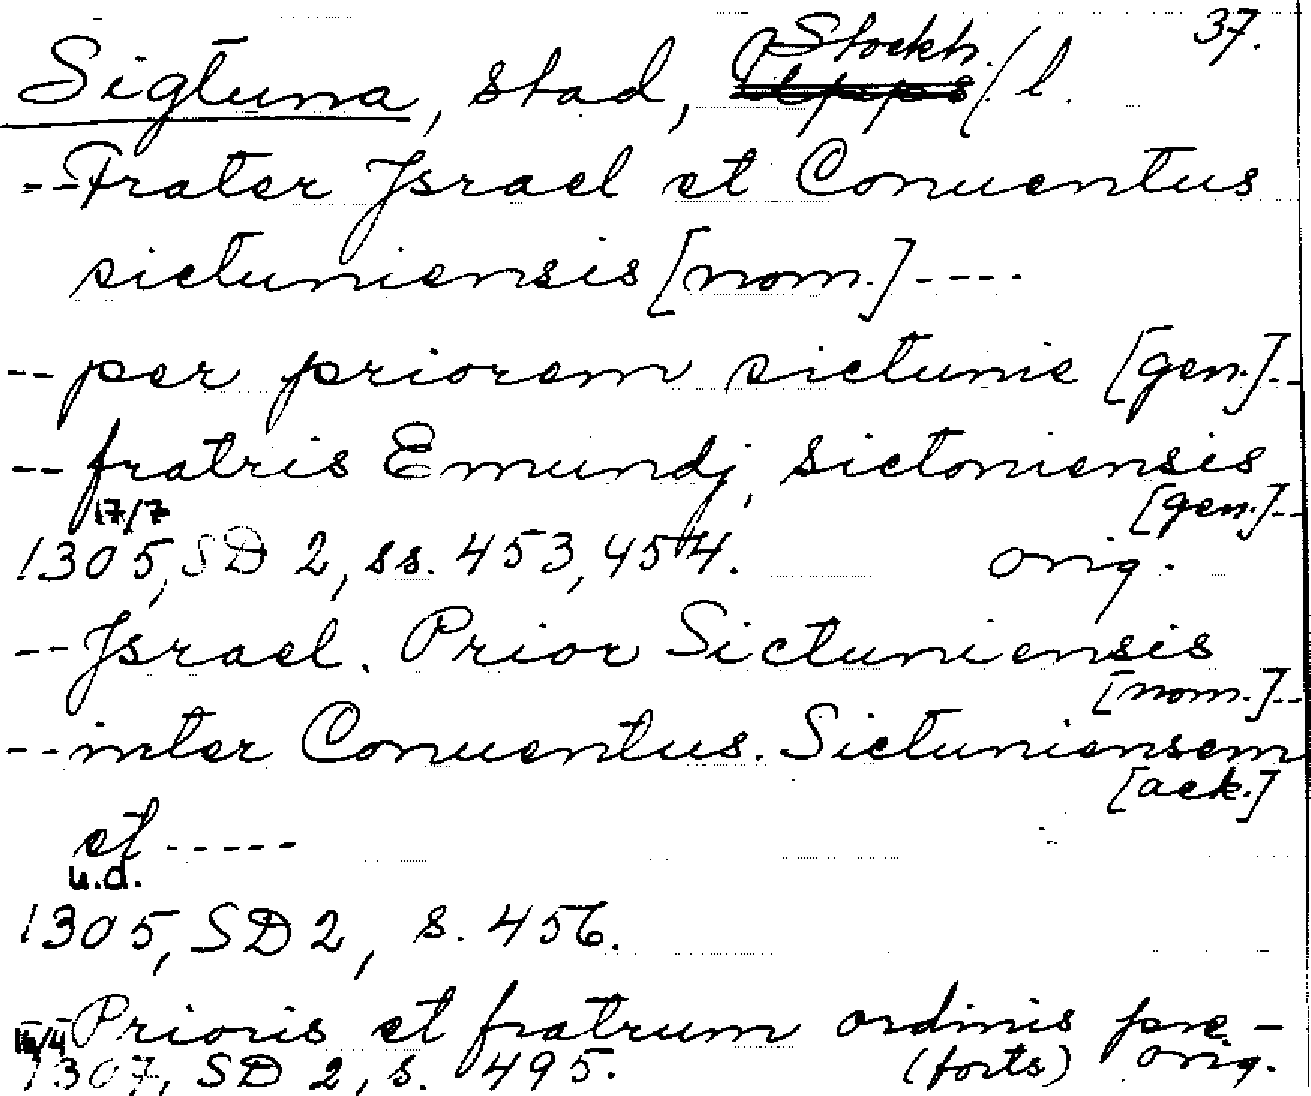 37.
Sigtuna, stad, Stockh. / l.
-- Frater Jsrael et Conuentus
sictuniensis [nom.] ----
-- per priorem sictunie [gen.] --
-- fratris Emundj, sictoniensis
[gen.] --
17/7
1305, SD 2, ss. 453, 454. orig.
-- Jsrael. Prior Sictuniensis
[nom.] --
-- inter Conuentus. Sictuniensem
[ack.]
et -----
u.d.
1305, SD 2, s. 456.
Prioris et fratrum ordinis pre-
1307, SD 2, s. 495. (forts) orig.